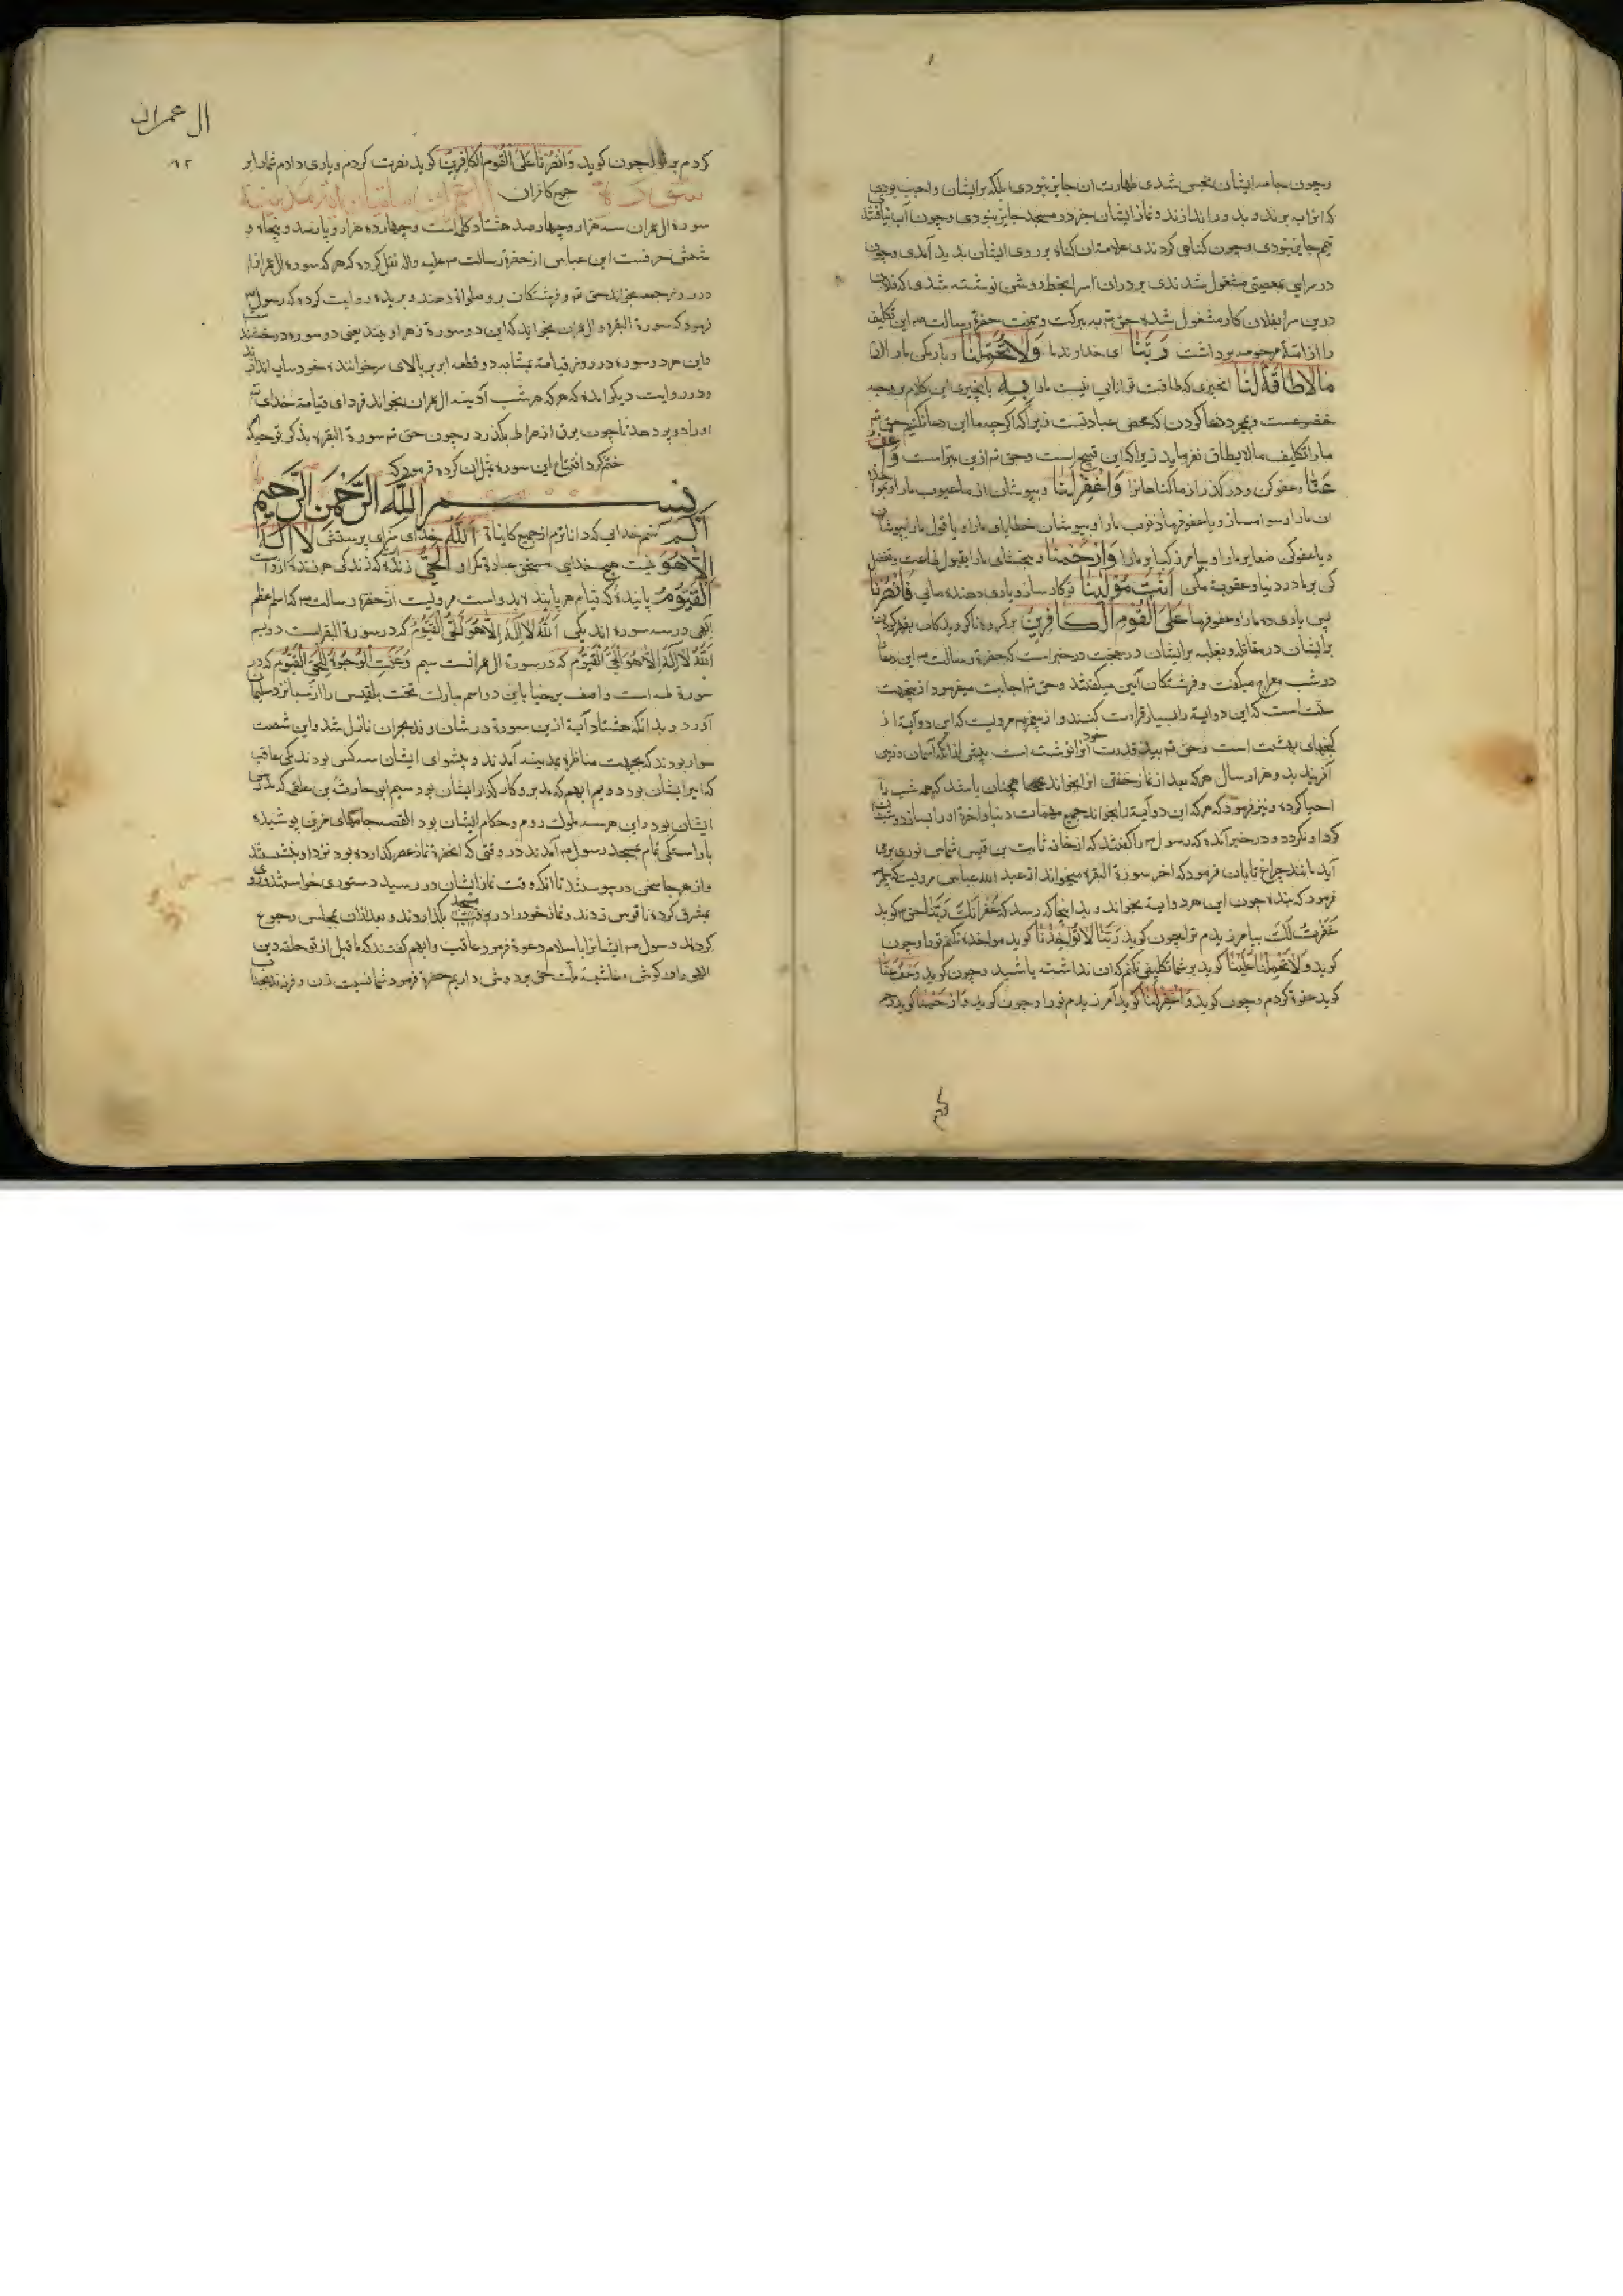 وچون جامه ایشان نجس شدی طهارت ان جایز نبودی بلکه برایشان واجب بودی
که انرا ببرند و بدور اندازند و نماز ایشان جز در مسجد جایز نبودی وچون آب نیافتند
تیمم جایز نبودی وچون کناهی کردندی علامة ان کناه بر روی ایشان بدید آمدی وچون
در سرایی بمعصیتی مشغول شدندی بر در ان سرا بخط روشن نوشته شدی که فلان
درین سرا بفلان کار مشغول شده حق تع به برکت ویمنت حضرة رسالت ص این تکلیف
را از امة مرحومه برداشت رَبَّنا ای خداوند ما وَلا تُحَمِّلْنا وبار مکن مارا
مَالا طاقَةَ لَنا انچیزی که طاقت وتوانایی نیست مارا بِهِ بانچیز این کلام بر وجه
خضوعست وبمجرد دعا کردن که محض عبادتست زیرا که اکرچه ما این دعا نکنیم حق تع
مارا تکلیف مالایطاق نفرماید زیرا که این قبیح است وحق تع ازین مبراست وَاعْفُ
عَنّا وعفو کن ودرکذر از ما کناهانرا وَاغْفِرْلَنا وبپوشان از ما عیوب مارا
ان مارا رسوا مساز ویا عفو فرما ذنوب مارا وبپوشان خطایای مارا ویا قول مارا بپوشان
ویا عفو کن صغایر مارا وبیامرز کبایر مارا وَارْحَمْنا وببخشای مارا بقبول طاعت وتفضل
کن بر ما در دنیا وعقوبة مکن اَنْتَ مَوْلینا تو کارساز ویاری دهنده مایی فَانْصُرْنا
پس یاری ده مارا وعفو فرما عَلَی الْقَوْمِ الْکافِرینَ بر کروه ناکرویدکان
برایشان در مقاتله وبغلبه برایشان در حجت در خبر است که حضرة رسالت ص این دعا
در شب معراج میکفت وفرشتکان آمین میکفتند وحق تع اجابت میفرمود ازینجهت
سنت است که این دو ایة را بسیار قراءت کنند واز پیغمبر ص مرویست که این دو آیة از
کنجهای بهشت است وحق تع بید قدرت خود انرا نوشته است پیش از انکه آسمان وزمین
آفریند بدو هزار سال هرکه بعد از نماز خفتن انرا بخواند همچنان باشد که همه شب را
احیا کرده ونیز فرمود که هرکه این دو آیة را بخواند جمیع مهمات دنیا واخرة او را بسازد
کرد او نکردد ودر خبر آمده که رسول ص را کفتند که از خانه ثابت بن قیس شماس نوری برمی
آید مانند چراغ تابان فرمود که اخر سورة البقره میخواند از عبد الله عباس مرویست که پیغمبر ص
فرمود که بنده چون این هر دو ایة بخواند وبدانجا که رسد که غُفْرانَکَ رَبَّنا حق تع کوید
غَفَرْتُ لَکَ بیامرزیدم ترا وچون کوید رَبَّنا لا تُؤاخِذْنا کوید مواخذه نکنم تورا وچون
کوید وَلا تَحْمِلْ عَلَیْنا کوید بر شما تکلیفی نکنم که ان نداشته باشید وچون کوید وَاعْفُ عَنّا
کوید عفوة کردم وچون کوید وَاغْفِرْلَنا کوید آمرزیدم تورا وچون کوید وَارْحَمْنا کوید رحم
ال عمران
٩٢
کردم بر تو وچون کوید وَانْصُرْنا عَلَی الْقَوْمِ الْکافِرینَ کوید نصرت کردم ویاری دادم شمارا بر
جمیع کافران سورة
سورة ال عمران سه هزار وچهار صد هشتاد کلمه است وچهارده هزار وپانصد وپنجاه و
شش حرفست ابن عباس از حضرة رسالت ص علیه واله نقل کرده که هرکه سوره ال عمران را
در روز جمعه بخواند حق تع وفرشتکان برو صلواة دهند وبریده روایت کرده که رسول ص
فرمود که سورة البقره وال عمران بخوانید که این دو سورة زهراوینند یعنی دو سوره درخشنده
واین هر دو سوره در روز قیامة بمثابه دو قطعه ابر بر بالای سر خواننده خود سایه اندازند
ودر روایت دیکر امده که هرکه هر شب آدینه ال عمران بخواند فردای قیامة خدای تع
او را دو پر دهد تا چون برق از صراط بکذرد وچون حق تع سورة البقره بذکر توحید
ختم کرد افتتاح این سوره بمثل ان کرده فرمود که
بسم الله الرحمن الرحیم
الم منم خدایی که داناترم از جمیع کاینات اَللهُ خدای سزای پرستش لا اِلهَ
اِلّا هُوَ نیست هیچ خدایی مستحق عبادة مکر او اَلْحَیُّ زنده که زندکی هر زنده ازوست
اَلْقَیُّومُ پاینده که قیام هر پاینده بدو است مرویست از حضرة رسالت ص که اسم اعظم
الهی در سه سوره اند یکی اَللهُ لا اِلهَ اِلّا هُوَ الْحَیُّ الْقَیُّومُ که در سورة البقر است دویم
اَللهُ لا اِلهَ اِلّا هُوَ الْحَیُّ الْقَیُّومُ که در سورة ال عمرانست سیم وَعَنَتِ الْوُجُوهُ لِلْحَیِّ الْقَیُّومِ که در
سورة طه است واصف برخیا باین دو اسم مبارک تخت بلقیس را از سبا نزد سلیمان
آورد وبدانکه هشتاد آیة ازین سورة در شان وفد نجران نازل شد واین شصت
سوار بودند که بجهت مناظره بمدینه آمدند وپیشوای ایشان سه کس بودند یکی عاقب
که امیر ایشان بود دویم ایهم که مدبر وکارکذار ایشان بود سیم ابو حارث بن علقمه که مدرس
ایشان بود واین هر سه ملوک روم وحکام ایشان بود القصه جامهای مزین پوشیده
باراستکی تمام بمسجد رسول ص آمدند در وقتی که انحضرة نماز عصر کذارده بود نزد او بنشستند
واز هر جا سخن درپیوستند تا انکه وقت نماز ایشان در رسید دستوری خواستند وروی
بمشرق کرده ناقوس زدند ونماز خود را در مسجد بکذاردند وبعد ازان بمجلس رجوع
کردند رسول ص ایشانرا باسلام دعوة فرمود عاقب وایهم کفتند که ما قبل از تو حلقه دین
الهی در کوش وغاشیه ملت حق بر دوش داریم حضرة فرمود شما نسبت زن وفرزند بجناب